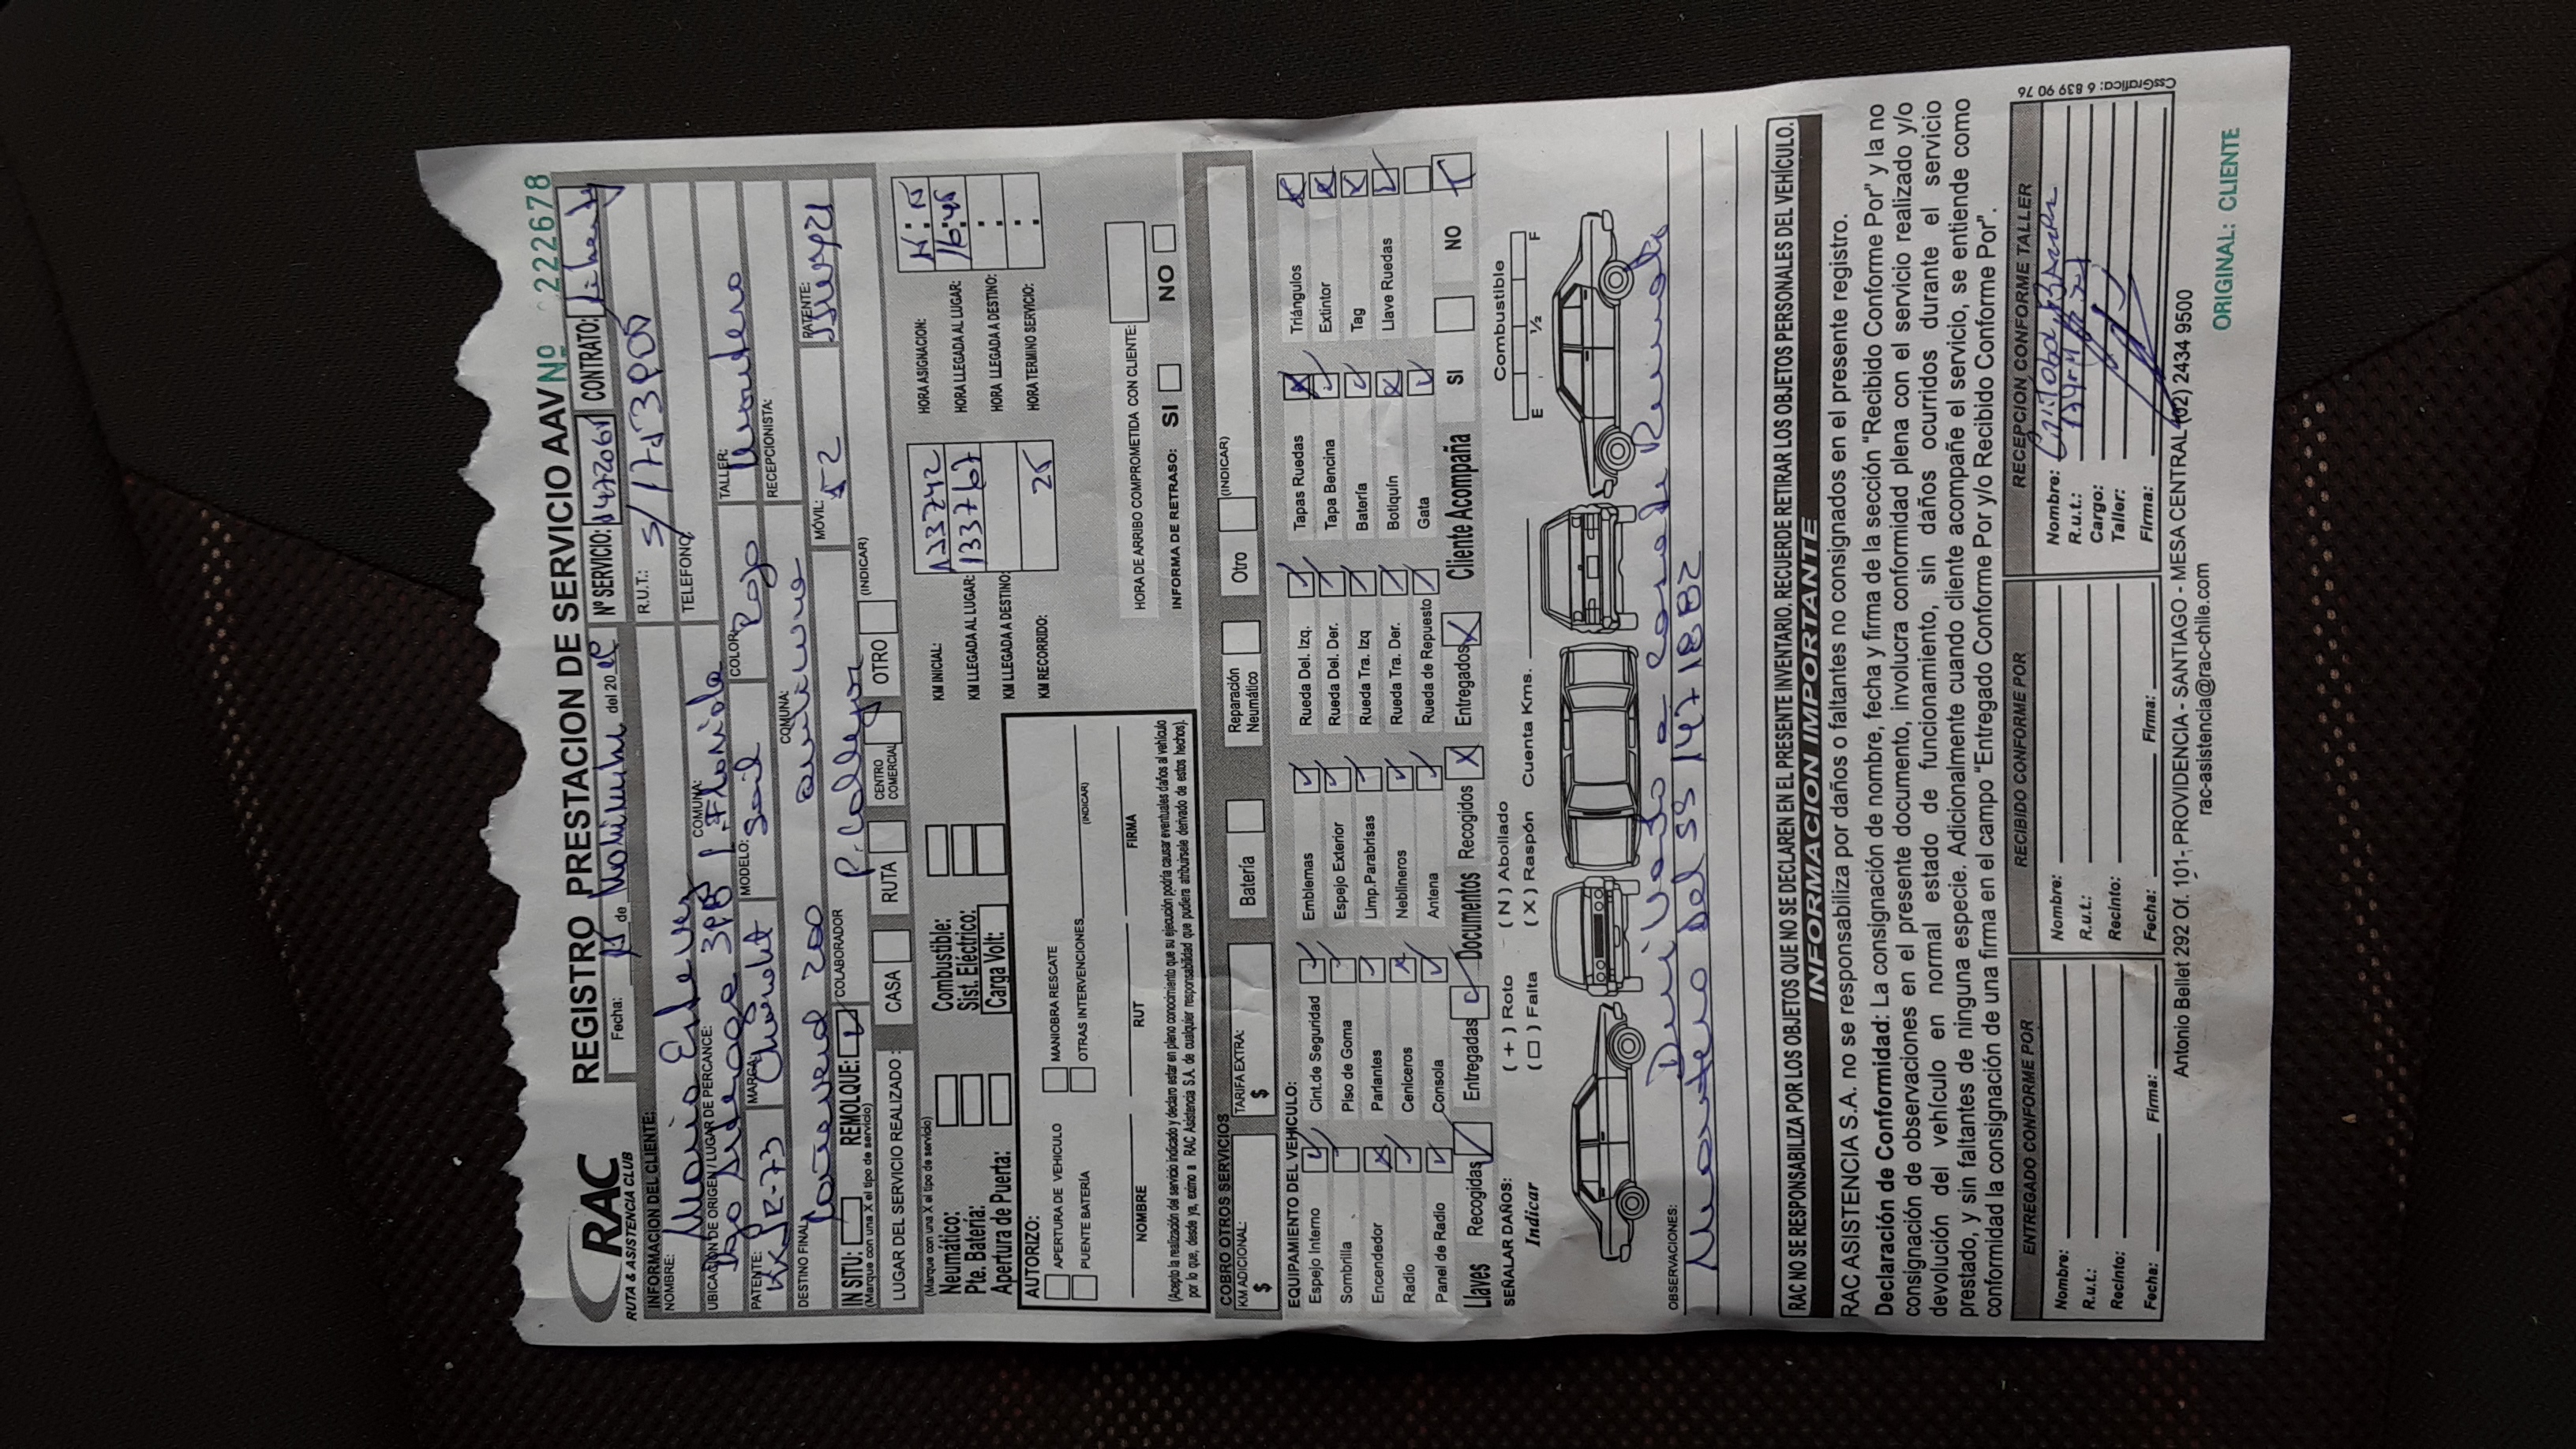 RAC
RUTA & ASISTENCIA CLUB
REGISTRO PRESTACION DE SERVICIO AAV Nº 222678
Fecha: de del 20 Nº SERVICIO: CONTRATO:
INFORMACION DEL CLIENTE:
NOMBRE: Mario Estevez R.U.T.: S/
UBICACIÓN DE ORIGEN / LUGAR DE PERCANCE: COMUNA: Florida TELEFONO:
PATENTE: MARCA: Chevrolet MODELO: Sail COLOR: Rojo TALLER: Montero
DESTINO FINAL: 200 COMUNA: RECEPCIONISTA:
IN SITU: REMOLQUE: COLABORADOR MÓVIL: 52 PATENTE:
(Marque con una X el tipo de servicio)
LUGAR DEL SERVICIO REALIZADO: CASA RUTA CENTRO COMERCIAL OTRO (INDICAR)
(Marque con una X el tipo de servicio)
Neumático: Combustible:
Pte. Batería: Sist. Eléctrico:
Apertura de Puerta: Carga Volt:
KM INICIAL: 133742 HORA ASIGNACION:
KM LLEGADA AL LUGAR: 133767 HORA LLEGADA AL LUGAR: 16:45
KM LLEGADA A DESTINO: HORA LLEGADA A DESTINO:
KM RECORRIDO: 25 HORA TERMINO SERVICIO:
AUTORIZO:
APERTURA DE VEHICULO MANIOBRA RESCATE
PUENTE BATERÍA OTRAS INTERVENCIONES (INDICAR)
NOMBRE RUT FIRMA
(Acepto la realización del servicio indicado y declaro estar en pleno conocimiento que su ejecución podría causar eventuales daños al vehículo
por lo que, desde ya, eximo a RAC Asistencia S.A. de cualquier responsabilidad que pudiera atribuírsele derivado de estos hechos).
HORA DE ARRIBO COMPROMETIDA CON CLIENTE:
INFORMA DE RETRASO: SI NO
COBRO OTROS SERVICIOS
KM ADICIONAL: $ TARIFA EXTRA: $ Batería Reparación Neumático Otro (INDICAR)
EQUIPAMIENTO DEL VEHICULO:
Espejo Interno Cint.de Seguridad Emblemas Rueda Del. Izq. Tapas Ruedas Triángulos
Sombrilla Piso de Goma Espejo Exterior Rueda Del. Der. Tapa Bencina Extintor
Encendedor Parlantes Limp.Parabrisas Rueda Tra. Izq Batería Tag
Radio Ceniceros Neblineros Rueda Tra. Der. Botiquín Llave Ruedas
Panel de Radio Consola Antena Rueda de Repuesto Gata
Llaves Recogidas Entregadas Documentos Recogidos Entregados Cliente Acompaña SI NO
SEÑALAR DAÑOS: ( + ) Roto ( N ) Abollado
Indicar ( □ ) Falta ( X ) Raspón Cuenta Kms. Combustible
E ½ F
OBSERVACIONES: Derivado a Casa de Reinaldo
Montero del SS 1471882
RAC NO SE RESPONSABILIZA POR LOS OBJETOS QUE NO SE DECLAREN EN EL PRESENTE INVENTARIO. RECUERDE RETIRAR LOS OBJETOS PERSONALES DEL VEHÍCULO.
INFORMACION IMPORTANTE
RAC ASISTENCIA S.A. no se responsabiliza por daños o faltantes no consignados en el presente registro.
Declaración de Conformidad: La consignación de nombre, fecha y firma de la sección "Recibido Conforme Por" y la no
consignación de observaciones en el presente documento, involucra conformidad plena con el servicio realizado y/o
devolución del vehículo en normal estado de funcionamiento, sin daños ocurridos durante el servicio
prestado, y sin faltantes de ninguna especie. Adicionalmente cuando cliente acompañe el servicio, se entiende como
conformidad la consignación de una firma en el campo "Entregado Conforme Por y/o Recibido Conforme Por".
ENTREGADO CONFORME POR RECIBIDO CONFORME POR RECEPCION CONFORME TALLER
Nombre: Nombre: Nombre: Cristobal
R.u.t.: R.u.t.: R.u.t.:
Recinto: Recinto: Cargo:
Taller:
Fecha: Firma: Fecha: Firma: Firma:
Antonio Bellet 292 Of. 101- PROVIDENCIA - SANTIAGO - MESA CENTRAL (02) 2434 9500
rac-asistencia@rac-chile.com
ORIGINAL: CLIENTE
CssGrafica: 6 839 90 76